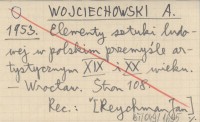 WOJCIECHOWSKI A.
1953. Elementy sztuki ludo-
wej w polskim przemyśle ar-
tystycznym XIX i XX wieku.
— Wrocław. Stron 108.
Rec.: "[Reychman Jan]